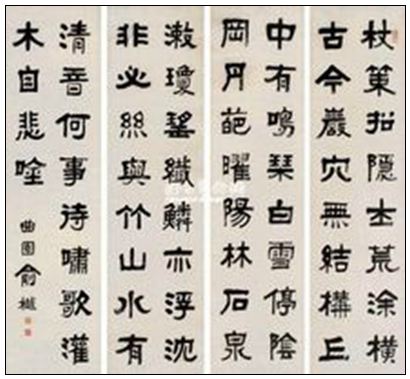 杖策招隱士荒涂橫
古今巖穴無結構丘
中有鳴琴白雪停陰
岡丹葩曜陽林石泉
漱瓊瑤纖鱗亦浮沈
非必絲與竹山水有
清音何事待嘯歌灌
木自悲唫
曲園俞樾